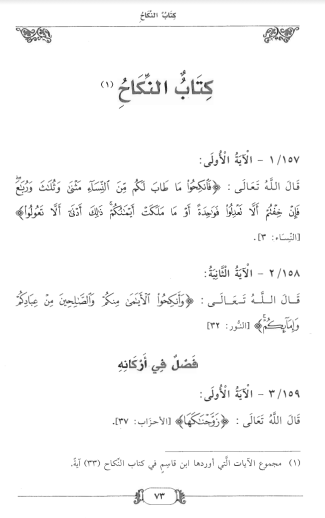 كِتَابُ النِّكَاحُ
كِتَابُ النِّكَاحُ (١)
١/١٥٧ - الْآيَةُ الْأُولَى:
قَالَ اللهُ تَعَالَى : ﴿فَٱنكِحُوا۟ مَا طَابَ لَكُم مِّنَ ٱلنِّسَآءِ مَثْنَىٰ وَثُلَـٰثَ وَرُبَـٰعَۖ
فَإِنْ خِفْتُمْ أَلَّا تَعْدِلُوا۟ فَوَٰحِدَةً أَوْ مَا مَلَكَتْ أَيْمَـٰنُكُمْۚ ذَٰلِكَ أَدْنَىٰٓ أَلَّا تَعُولُوا۟﴾
[النِّسَاء: ٣].
٢/١٥٨ - الْآيَةُ الثَّانِيَةُ:
قَالَ اللهُ تَعَالَى: ﴿وَأَنكِحُوا۟ ٱلْأَيَـٰمَىٰ مِنكُمْ وَٱلصَّـٰلِحِينَ مِنْ عِبَادِكُمْ
وَإِمَآئِكُمْۚ﴾ [النُّور: ٣٢]
فَصْلٌ فِي أَرْكَانِهِ
٣/١٥٩ - الْآيَةُ الْأُولَى:
قَالَ اللهُ تَعَالَى : ﴿زَوَّجْنَـٰكَهَا﴾ [الأحزاب: ٣٧].
(١) مجموع الآيات الَّتي أوردها ابن قاسِمٍ في كتاب النِّكاح (٣٣) آيةً.
٧٣